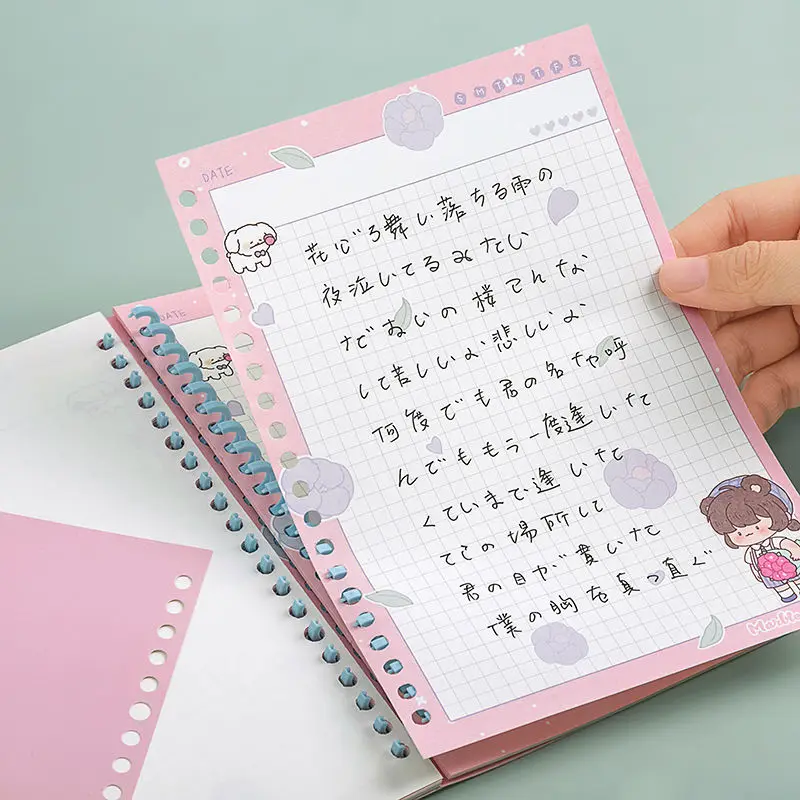 SMTWTFS
DATE
花びら舞い落ちる雨の
夜泣いてるみたい
の様てんな
して苦しいよ悲しいよ
何度でも君の名を呼
んでももう一度逢いたて
くていまで逢いたて
てこの場所して
君の目が貫いたて
僕の胸を真っ直ぐ
DATE